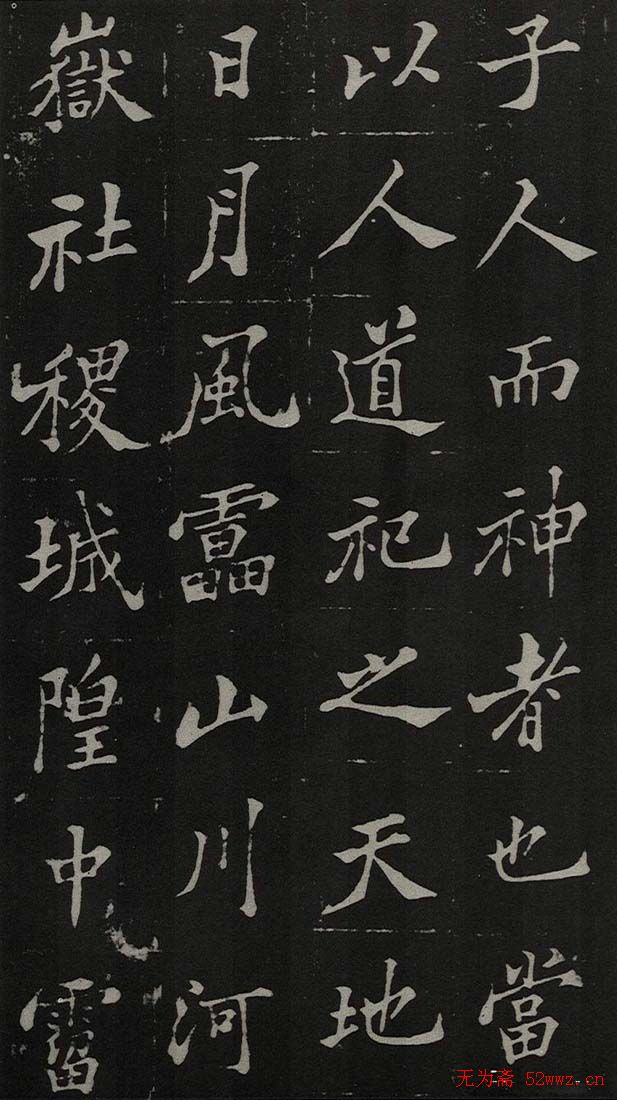 子人而神者也當
以人道祀之天地
日月風靁山川河
嶽社稷城隍中霤
无为斋 52wwz.cn